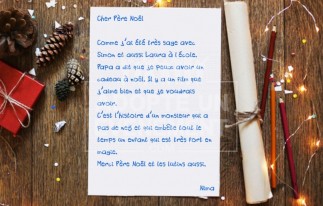 Cher Père Noël
Comme j'ai été très sage avec
Simon et aussi Laura à l'école,
Papa a dit que je peux avoir un
cadeau à noël. Il y a un film que
j'aime bien et que je voudrais
avoir.
C'est l'histoire d'un monsieur qui a
pas de nez et qui embête tout le
temps un enfant qui est très fort en
magie.
Merci Père Noël et les lutins aussi.
Nina